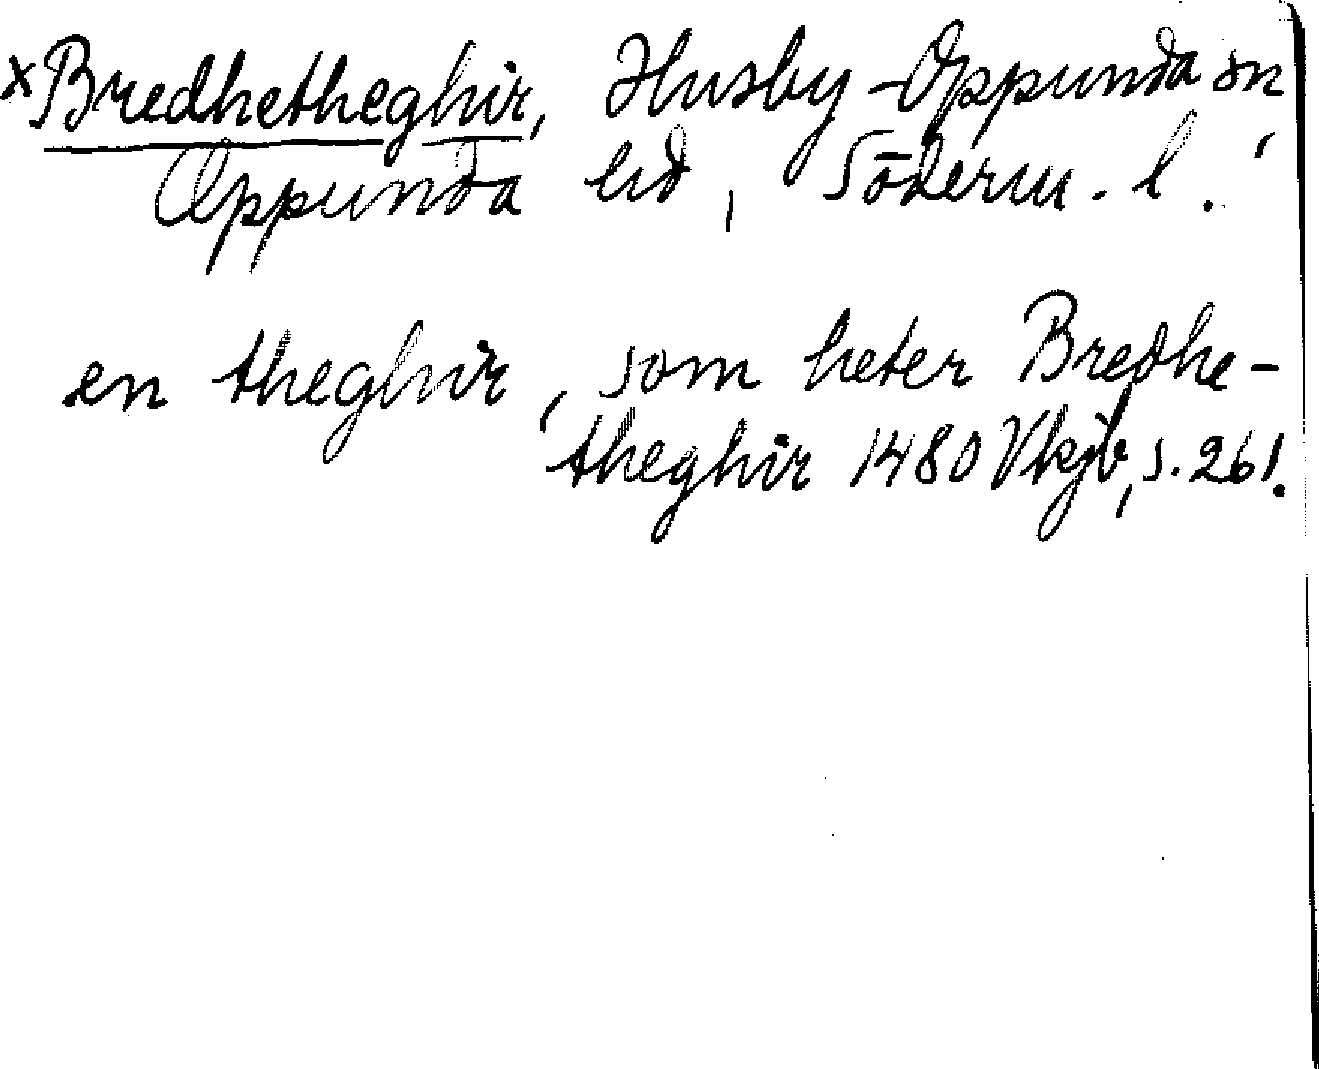 ×Bredhetheghir, Husby-Oppunda sn,
Oppunda hd, Söderm. l.
en theghir, som heter Bredhe-
theghir 1480 Vkjb, s. 261.